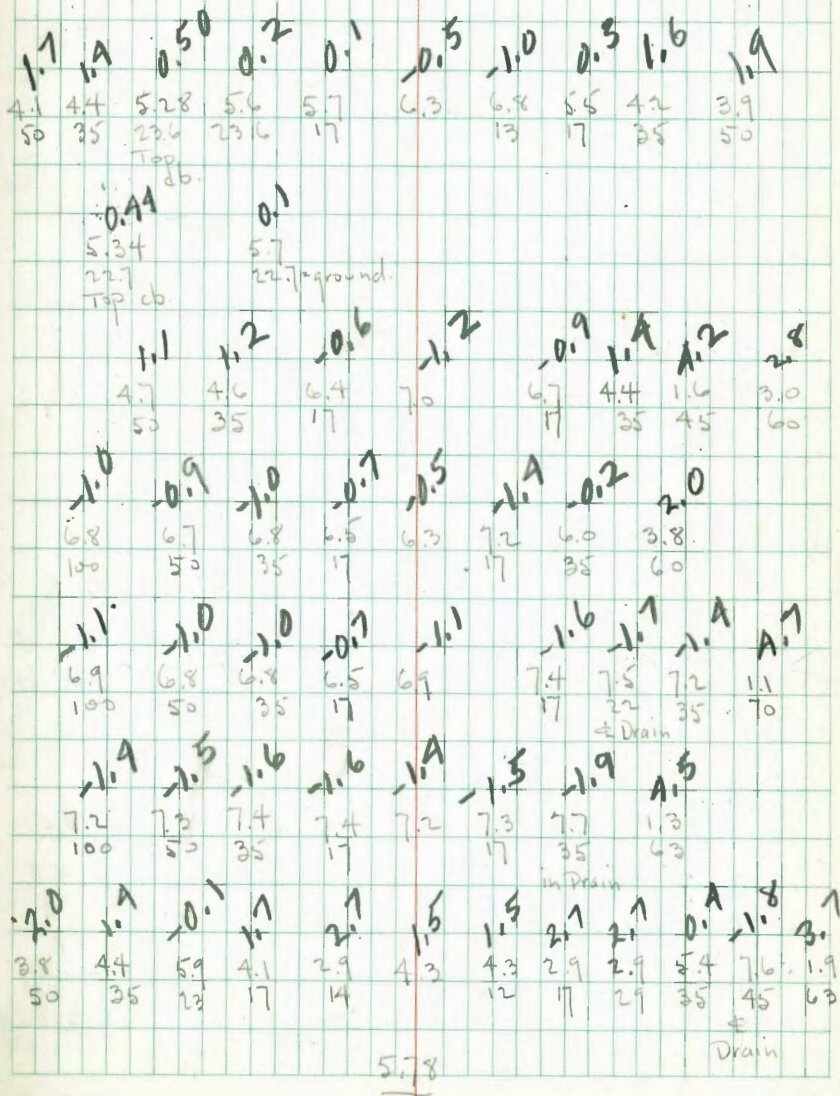 1.7 1.4 0.50 0.2 0.1 -0.5 -1.0 0.3 1.6 1.9
4.1 4.4 5.28 5.6 5.7 6.3 6.8 5.5 4.2 3.9
50 35 23.6 23.6 17 13 17 35 50
Top
cb.
0.44 0.1
5.34 5.7
22.7 22.7=ground.
Top cb
1.1 1.2 -0.6 -1.2 -0.9 1.4 4.2 2.8
4.7 4.6 6.4 7.0 6.7 4.4 1.6 3.0
50 35 17 17 35 45 60
-1.0 -0.9 -1.0 -0.7 -0.5 -1.4 -0.2 2.0
6.8 6.7 6.8 6.5 6.3 7.2 6.0 3.8
100 50 35 17 17 35 60
-1.1 -1.0 -1.0 -0.7 -1.1 -1.6 -1.7 -1.4 4.7
6.9 6.8 6.8 6.5 6.9 7.4 7.5 7.2 1.1
100 50 35 17 17 22 35 70
℄ Drain
-1.4 -1.5 -1.6 -1.6 -1.4 -1.5 -1.9 4.5
7.2 7.3 7.4 7.4 7.2 7.3 7.7 1.3
100 50 35 17 17 35 63
in Drain
2.0 1.4 -0.1 1.7 2.7 1.5 1.5 2.7 2.7 0.4 -1.8 3.7
3.8 4.4 5.9 4.1 2.9 4.3 4.3 2.9 2.9 5.4 7.6 1.9
50 35 23 17 14 12 17 29 35 45 63
℄
Drain
5.78